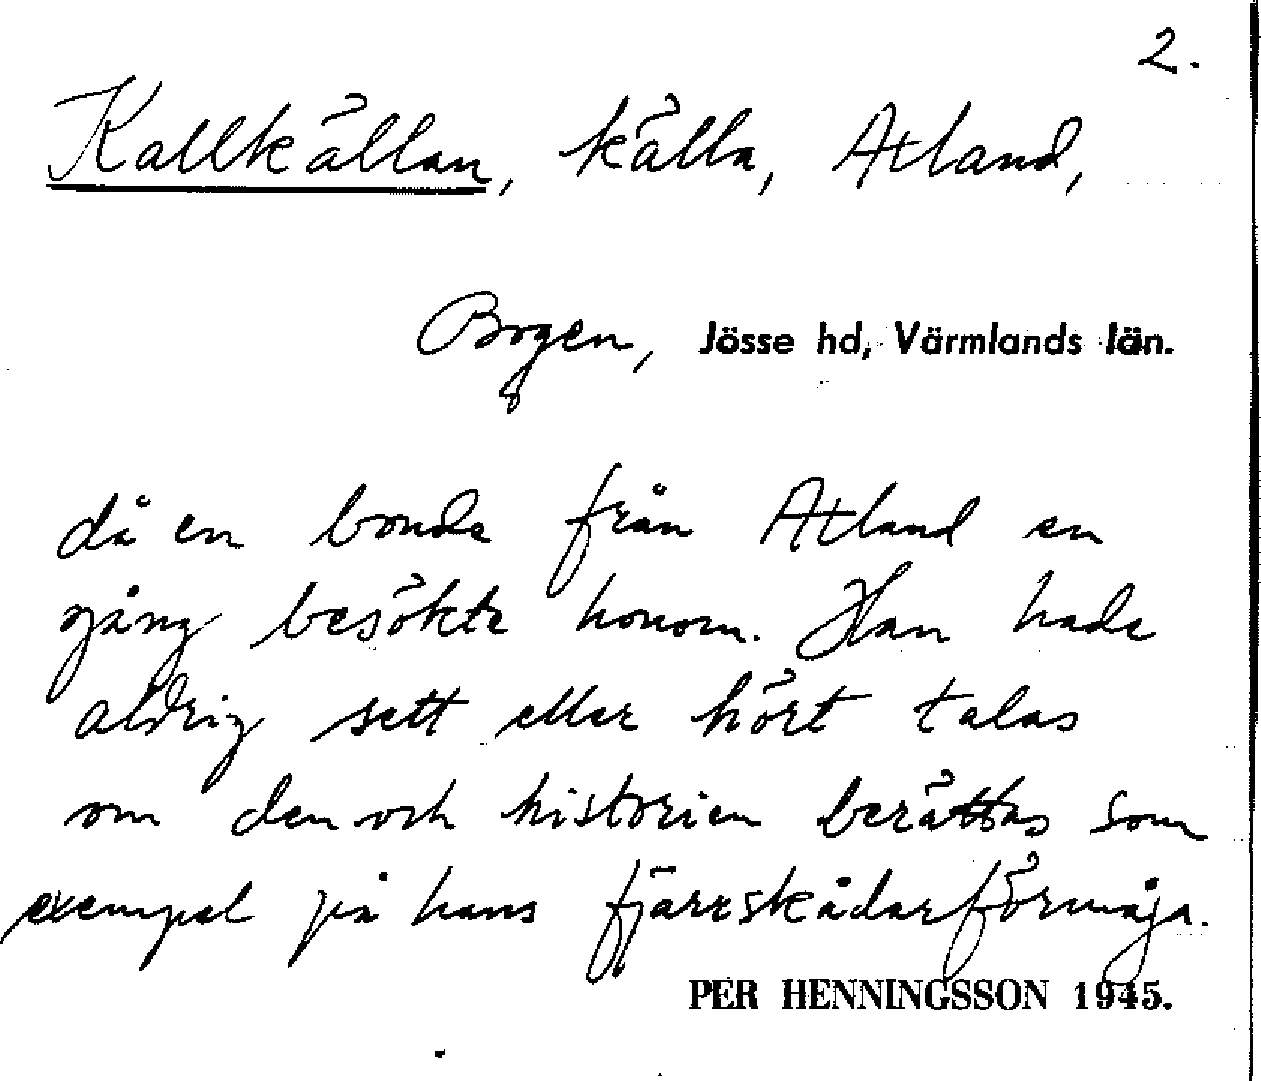 2.
Kallkällan, källa, Atland,
Bogen, Jösse hd, Värmlands län.
då en bonde från Atland en
gång besökte honom. Han hade
aldrig sett eller hört talas
om den och historien berättas som
exempel på hans fjärrskådarförmåga.
PER HENNINGSSON 1945.